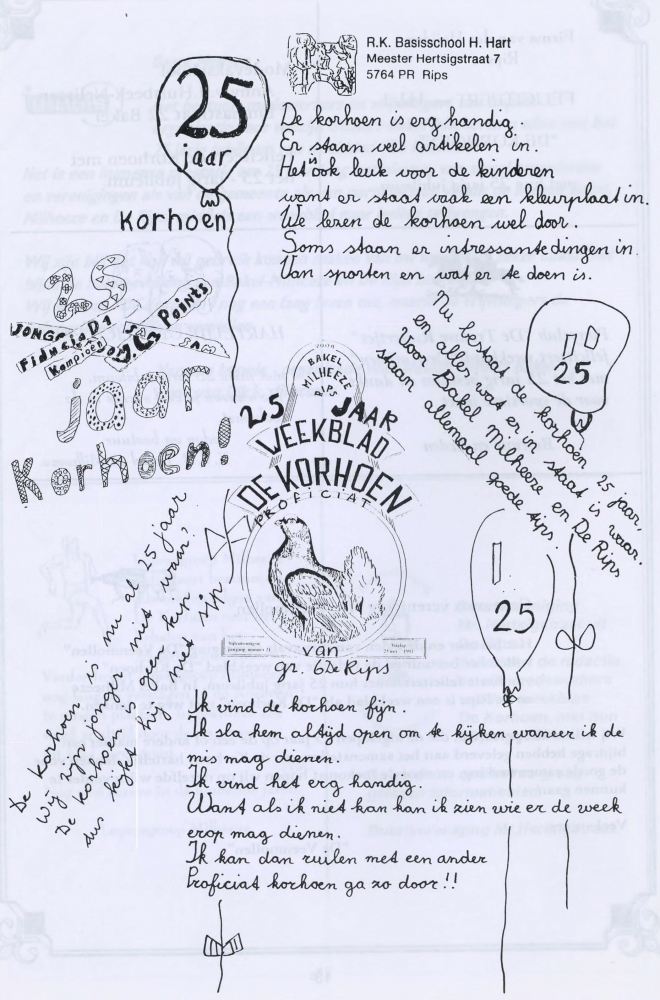 R.K. Basisschool H. Hart
Meester Hertsigstraat 7
5764 PR Rips
25
jaar
Korhoen
De korhoen is erg handig.
Er staan veel artikelen in.
Het is ook leuk voor de kinderen
want er staat vaak een kleurplaat in.
We leren de korhoen wel door.
Soms staan er intressante dingen in.
Van sporten en wat er te doen is.
25
JONGO
FiduciaD1
Kampioen
Points
jaar
Korhoen!
Nu bestaat de korhoen 25 jaar.
en alles wat er in staat is waar.
Voor Bakel Milheeze en De Rips
staan allemaal goede tips.
25
BAKEL
MILHEEZE
RIPS
25 JAAR
WEEKBLAD
DE KORHOEN
PROFICIAT
van
gr. 6 De Rips
25
De korhoen is nu al 25 jaar
Wij zijn jonger niet waar?
De korhoen is geen kip
dus kijkt hij niet sip
Ik vind de korhoen fijn.
Ik sla hem altijd open om te kijken waneer ik de
mis mag dienen.
Ik vind het erg handig.
Want als ik niet kan kan ik zien wie er de week
erop mag dienen.
Ik kan dan ruilen met een ander
Proficiat korhoen ga zo door!!